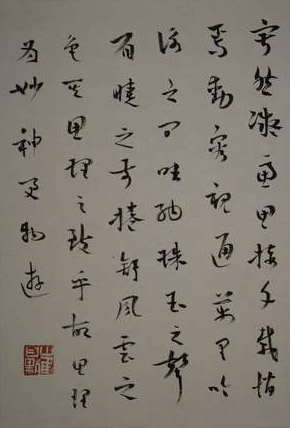 寂然凝慮思接千載悄
焉動容視通萬里吟
詠之間吐納珠玉之聲
眉睫之前捲舒風雲之
色其思理之致乎故思理
為妙神與物遊